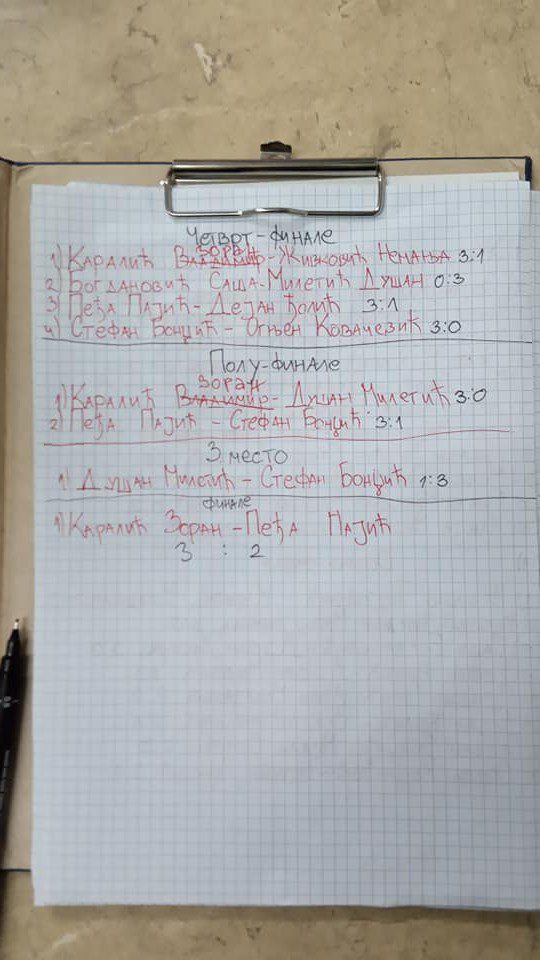 Четврт-финале
Зоран
1) Каралић Владимир - Живковић Немања 3:1
2) Богдановић Саша - Милетић Душан 0:3
3) Пеђа Пајић - Дејан Ђолић 3:1
4) Стефан Бонџић - Огњен Ковачевић 3:0
Полу-финале
Зоран
1) Каралић Владимир - Душан Милетић 3:0
2) Пеђа Пајић - Стефан Бонџић 3:1
3 место
1) Душан Милетић - Стефан Бонџић 1:3
финале
1) Каралић Зоран - Пеђа Пајић
3 : 2